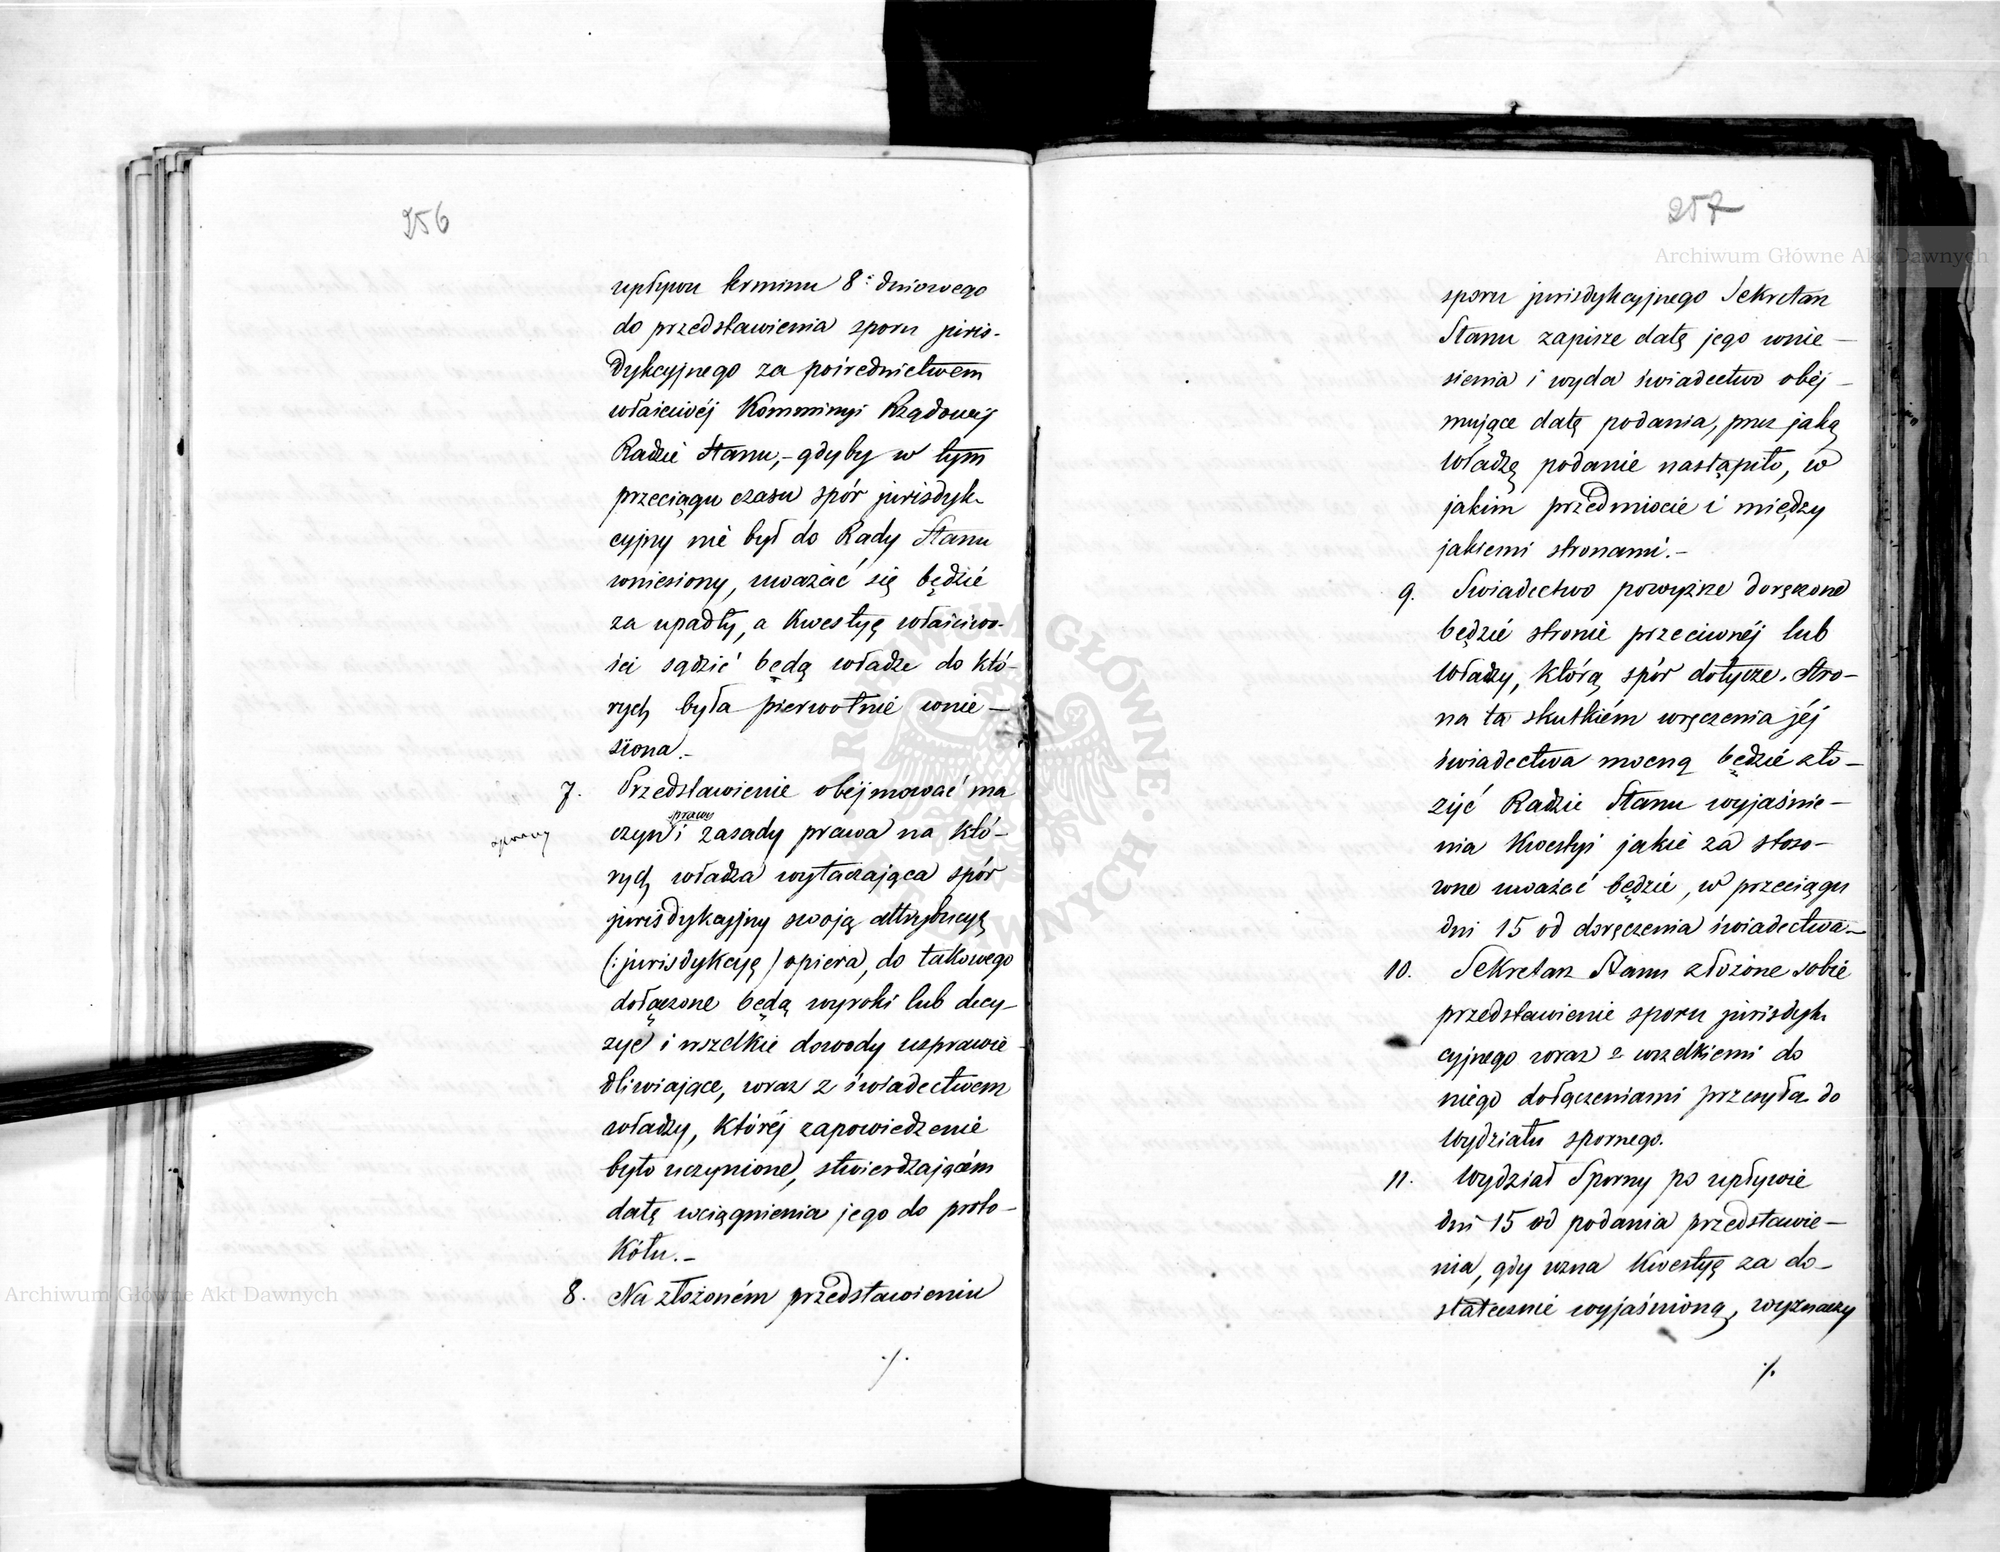 256
upływu terminu 8: dniowego
do przedstawienia sporu juris-
dykcyjnego za pośrednictwem
właściwéj Kommissyi Rządowéj
Radzie Stanu,- gdyby w tym
przeciągu czasu spór jurisdyk-
cyjny nie był do Rady Stanu
wniesiony, uważać się będzie
za upadły, a Kwestyę właściwo-
ści sądzić będą władze do któ-
rych była pierwotnie wnie-
siona.-
7. Przedstawienie obéjmować ma
sprawy
czyn i zasady prawa na któ-
rych władza wytaczająca spór
jurisdykcyjny swoją attrybucyę
(: jurisdykcyę) opiera, do takowego
dołączone będą wyroki lub decy-
zye i wszelkie dowody usprawie-
dliwiające, wraz z świadectwem
władzy, któréj zapowiedzenie
było uczynione, stwierdzającém
datę wciągnienia jego do proto-
kółu.-
8. Na złożoném przedstawieniu
./.
257
sporu jurisdykcyjnego Sekretarz
Stanu zapisze datę jego wnie-
sienia i wyda świadectwo obéj-
mujące datę podania, przez jaką
władzę podanie nastąpiło, w
jakim przedmiocie i między
jakiemi stronami.-
9. Świadectwo powyższe doręczone
będzie stronie przeciwnéj lub
władzy, którą spór dotycze. Stro-
na ta skutkiém wręczenia jéj
świadectwa mocną będzie zło-
żyć Radzie Stanu wyjaśnie-
nia Kwestyi jakie za stoso-
wne uważać będzie, w przeciągu
dni 15 od doręczenia świadectwa.-
10. Sekretarz Stanu złożone sobie
przedstawienie sporu jurisdyk-
cyjnego wraz z wszelkiemi do
niego dołączeniami przesyła do
Wydziału spornego.
11. Wydział Sporny po upływie
dni 15 od podania przedstawie-
nia, gdy uzna Kwestyę za do-
statecznie wyjaśnioną, wyznaczy
./.
Archiwum Główne Akt Dawnych
Archiwum Główne Akt Dawnych
ARCHIWUM GŁÓWNE AKT DAWNYCH